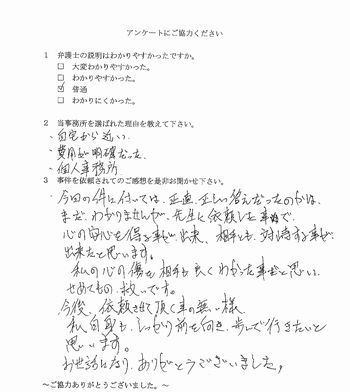 アンケートにご協力ください
1 弁護士の説明はわかりやすかったですか。
□ 大変わかりやすかった。
□ わかりやすかった。
☑ 普通
□ わかりにくかった。
2 当事務所を選ばれた理由を教えて下さい。
・自宅から近い。
・費用が明確だった。
・個人事務所
3 事件を依頼されてのご感想を是非お聞かせ下さい。
・今回の件に付いては、正直、正しい答えだったのかは、
まだ、わかりませんが、先生に依頼した事で、
心の安心を得る事が出来、相手とも、対峙する事が
出来たと思います。
私の心の傷を相手も良くわかった事だと思い、
せめてもの救いです。
今後、依頼させて頂く事の無い様、
私自身も、しっかり前を向き、歩んで行きたいと
思います。
お世話になり、ありがとうございました。
～ご協力ありがとうございました。～